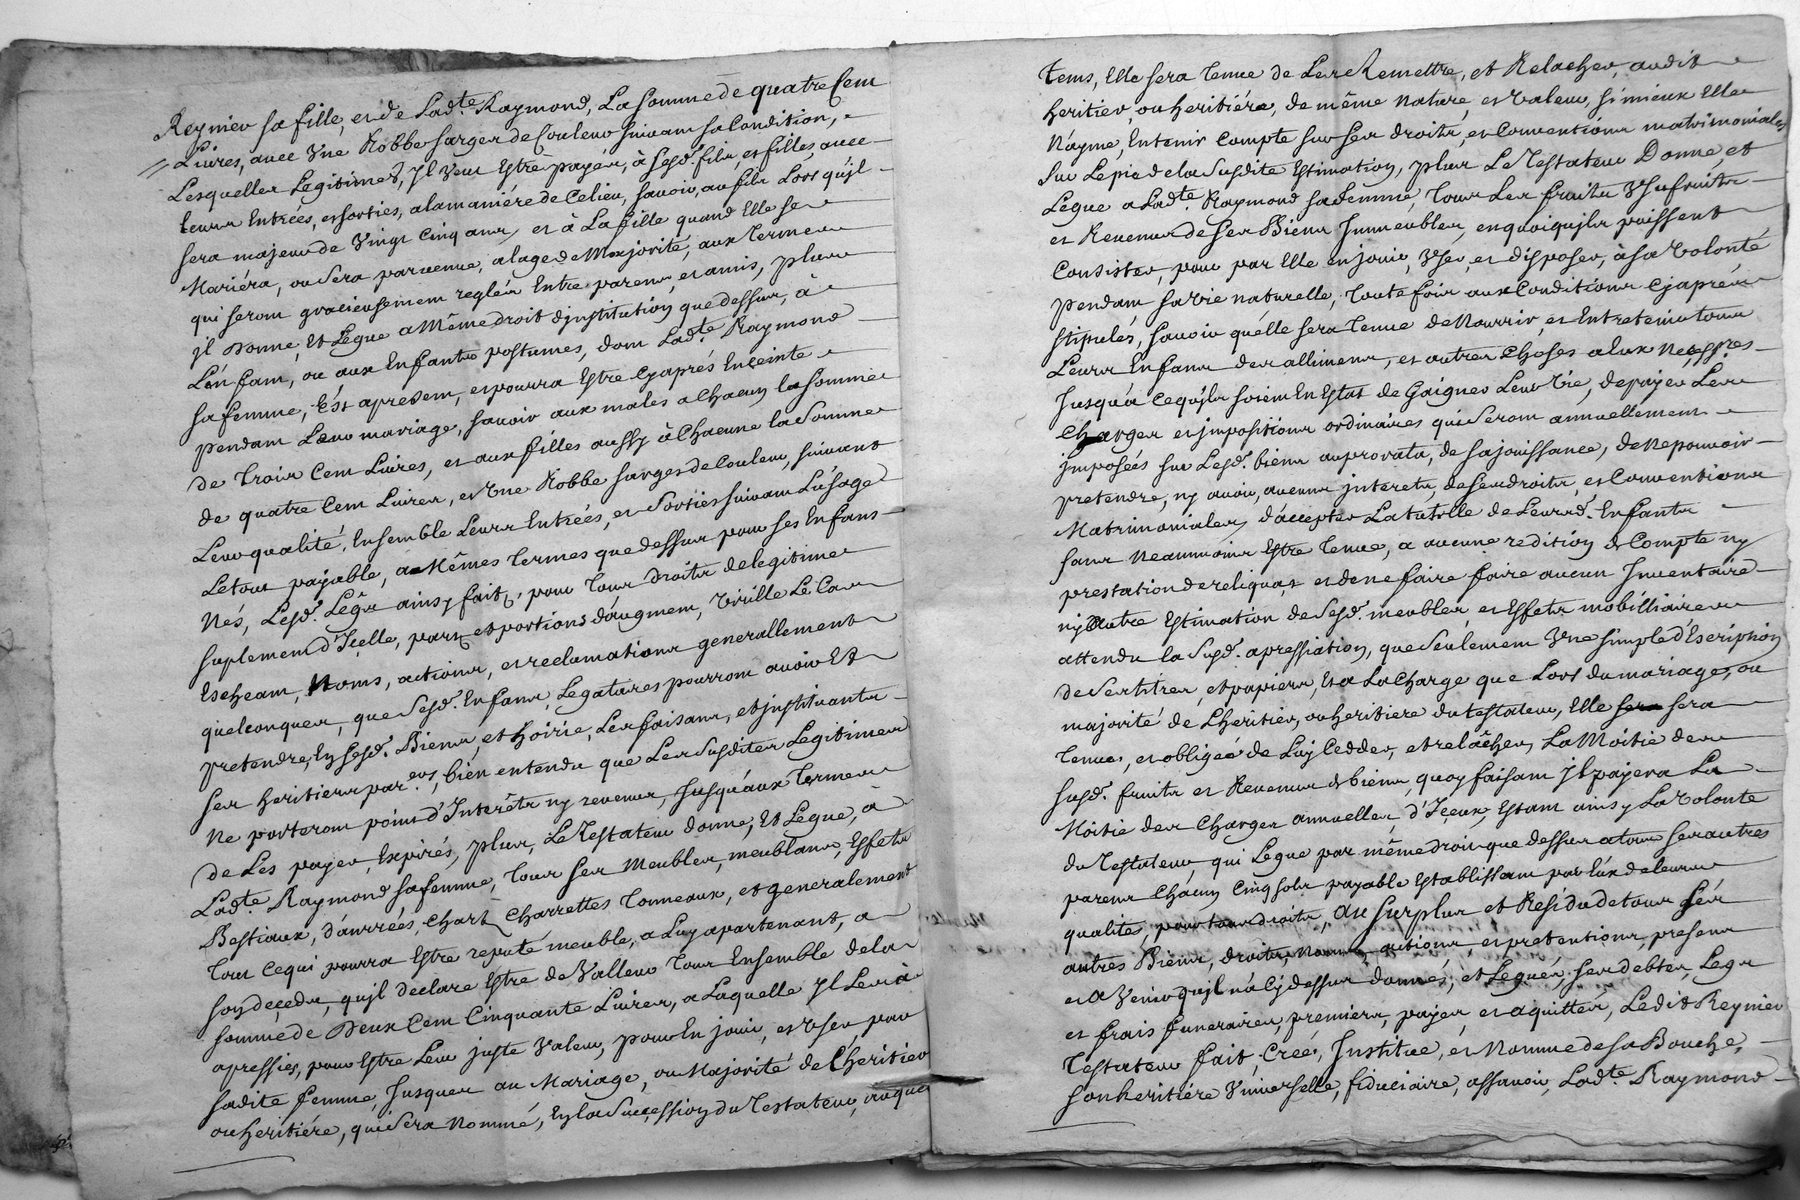 Reynier sa fille, et de Ladte. Raymond, La somme de quatre Cem
Livres, avec Une Robbe sarger de Couleur suivam sa Condition,
Lesqueller Legitimes, yl veut Estre payéer, à sesd. filr, et filles, avec
leurs Entrées, et sorties, a la maniére de Celieu, savoir, au filr Lors qu'jl
sera majeur de Vingt Cinq ans, et à La fille quand Elle se
Mariéra, ou sera parvenue, a lage de Majorité, aux Termes
qui serom gratieusemem regléz Entre parens, et amis, plus
jl Donne, Et Legue a Même droit d'institution que dessus, à
L'enfam, ou aux Enfants postumes, dom Ladte. Raymond
sa femme, Est apresem, et pourra Estre Cyaprés Enceinte
pendam Leur mariage, savoir aux males a Chacun la somme
de Trois Cem Livres, et aux filles aussy à Chacune la somme
de quatre Cem Livres, et Une Robbe sarges de Couleur, suivant
Leur qualité, Ensemble Leurs Entrées, et Sorties suivam L'usage
Le tout payable, a Mêmes Termes que dessus pour ses Enfans
Nés, Lesd. Legs ainsy fait, pour Tous droits de legitime
suplement d'Icelle, part et portions d'augmem, Virille Le Cas
Escheam, Noms, actions, et reclamations generallement
quelconques, que Sesd. Enfans, Legataires pourrom avoir Et
pretendre, En Sesd. Biens, et hoirie, Les faisans, et instituants
ses heritiers par bien entendu que Les susdites Legitimes
Ne porterom poins d'Interêts ny revenus, Jusqu'aux Termes
de Les payer, Expirés, plus, Le Testateur donne, Et Legue, à
Ladte. Raymond sa femme, Tous ses Meubles, meublans, Effets
Bestiaux, d'anrrées, Chars Charrettes Tonneaux, et generalement
Tout Ce qui pourra Estre reputé meuble, a Luy apartenant, a
son deçedu, qu'jl declare Estre de Valleur Tous Ensemble de la
somme de Deux Cem Cinquante Livres, a Laquelle yl Les à
apressiés, pour Estre Leur juste Valeur, pour En jouir, et User par
sadite femme, Jusques au Mariage, ou Majorité de L'heritier
ou heritiére, qui sera Nommé, En la Succession du Testateur, auquel
tems, Elle sera Tenue de Les Remettre, et Relacher, audit
heritier, ou heritiére, de même Nature, et Valeur, si mieux Elle
N'ayme, En tenir Compte sur ses droits, et Conventions matrimoniales
sur Le pied de la Susdite Estimation, plus Le Testateur Donne, et
Legue a Ladte. Raymond sa femme, Tous Les fruits Usufruits
et Revenus de ses Biens Immeubles, en quoi qu'jls puissent
Consister, pour par Elle en jouir, User, et disposer, à sa Volonté
pendam sa vie naturelle, Toute fois aux Conditions Cyaprés
stipulés, savoir qu'elle sera Tenue de Nourrir, et Entretenir tous
Leurs Enfans des allimens, et autres Choses a Eux Necesspres
Jusqu'a Ce qu'jls soiem En Estat de Gaigner Leur Vie, de payer Les
Charges et jmpositions ordinaires qui Serom annuellement
jmposées sur Lesd. biens au prorata, de sa jouissance, de Ne pouvoir
pretendre, ny avoir, aucuns jnterets, de ses droits, et Conventions
Matrimoniales, d'accepter La tutelle de Leursd. Enfants
sans Neanmoins Estre Tenue, a aucune redition de Compte ny
prestation de reliquat et de ne faire faire aucun Inventaire
ny Autre Estimation de Sesd. meubles, et Effets mobilliaires
attendu la Susd. apressiation, que Seulement Une simple d'Escription
de Ses titres, et papiers, Et a La Charge que Lors du mariage, ou
majorité de L'heritier, ou heritiere du testateur, Elle sera
Tenue, et obligeé de Luy Cedder, et relâcher, La Moitie des
susd. fruits et Revenus de biens, quoy faisam jl payera La
Moitie des Charges annuelles, d'Iceux, Estam ainsy La Volonte
du Testateur, qui Legue par même droit que dessus a tous ses autres
parens Chacun Cinq sols payable Establissam par Eux de leurs
qualités, pour tous droits, Au surplus et Résidu de tous Ses
autres Biens, droits, Noms actions et pretentions, presens
et a Venir qu'jl n'a Cy dessus donnés, et Legués, ses debtes, Legs
et frais funeraires, premiers, payés, et aquittés, Ledit Reynier
Testateur fait, Créé, Institue, et Nomme de sa Bouche,
son heritiére Universelle, fiduciaire, assavoir, Ladte. Raymond